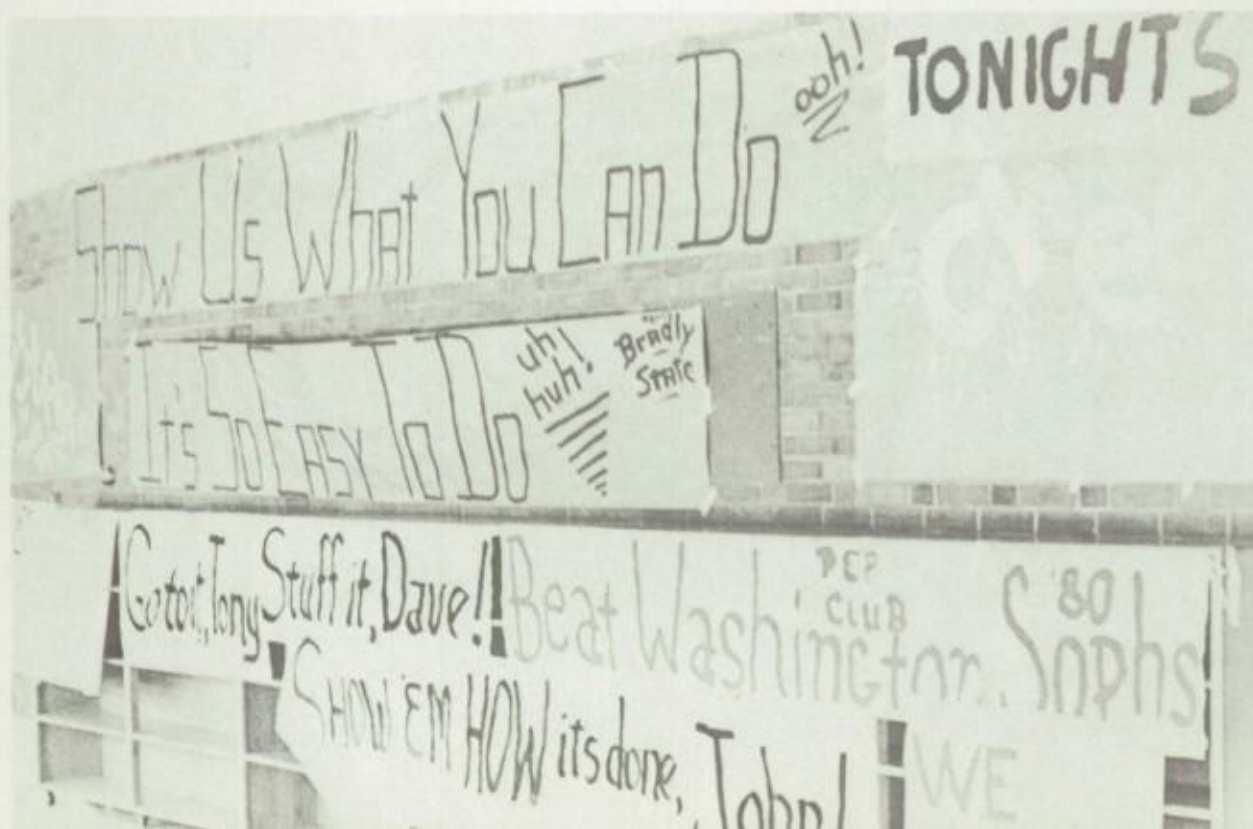 Show Us What You Can Do ooh!
TONIGHTS
It's So Easy To Do uh huh!
Bradly
State
Go to it, Tony
Stuff it, Dave!!
Beat Washington.. Sophs
PEP
CLUB
'80
SHOW 'EM HOW its done, John!
WE